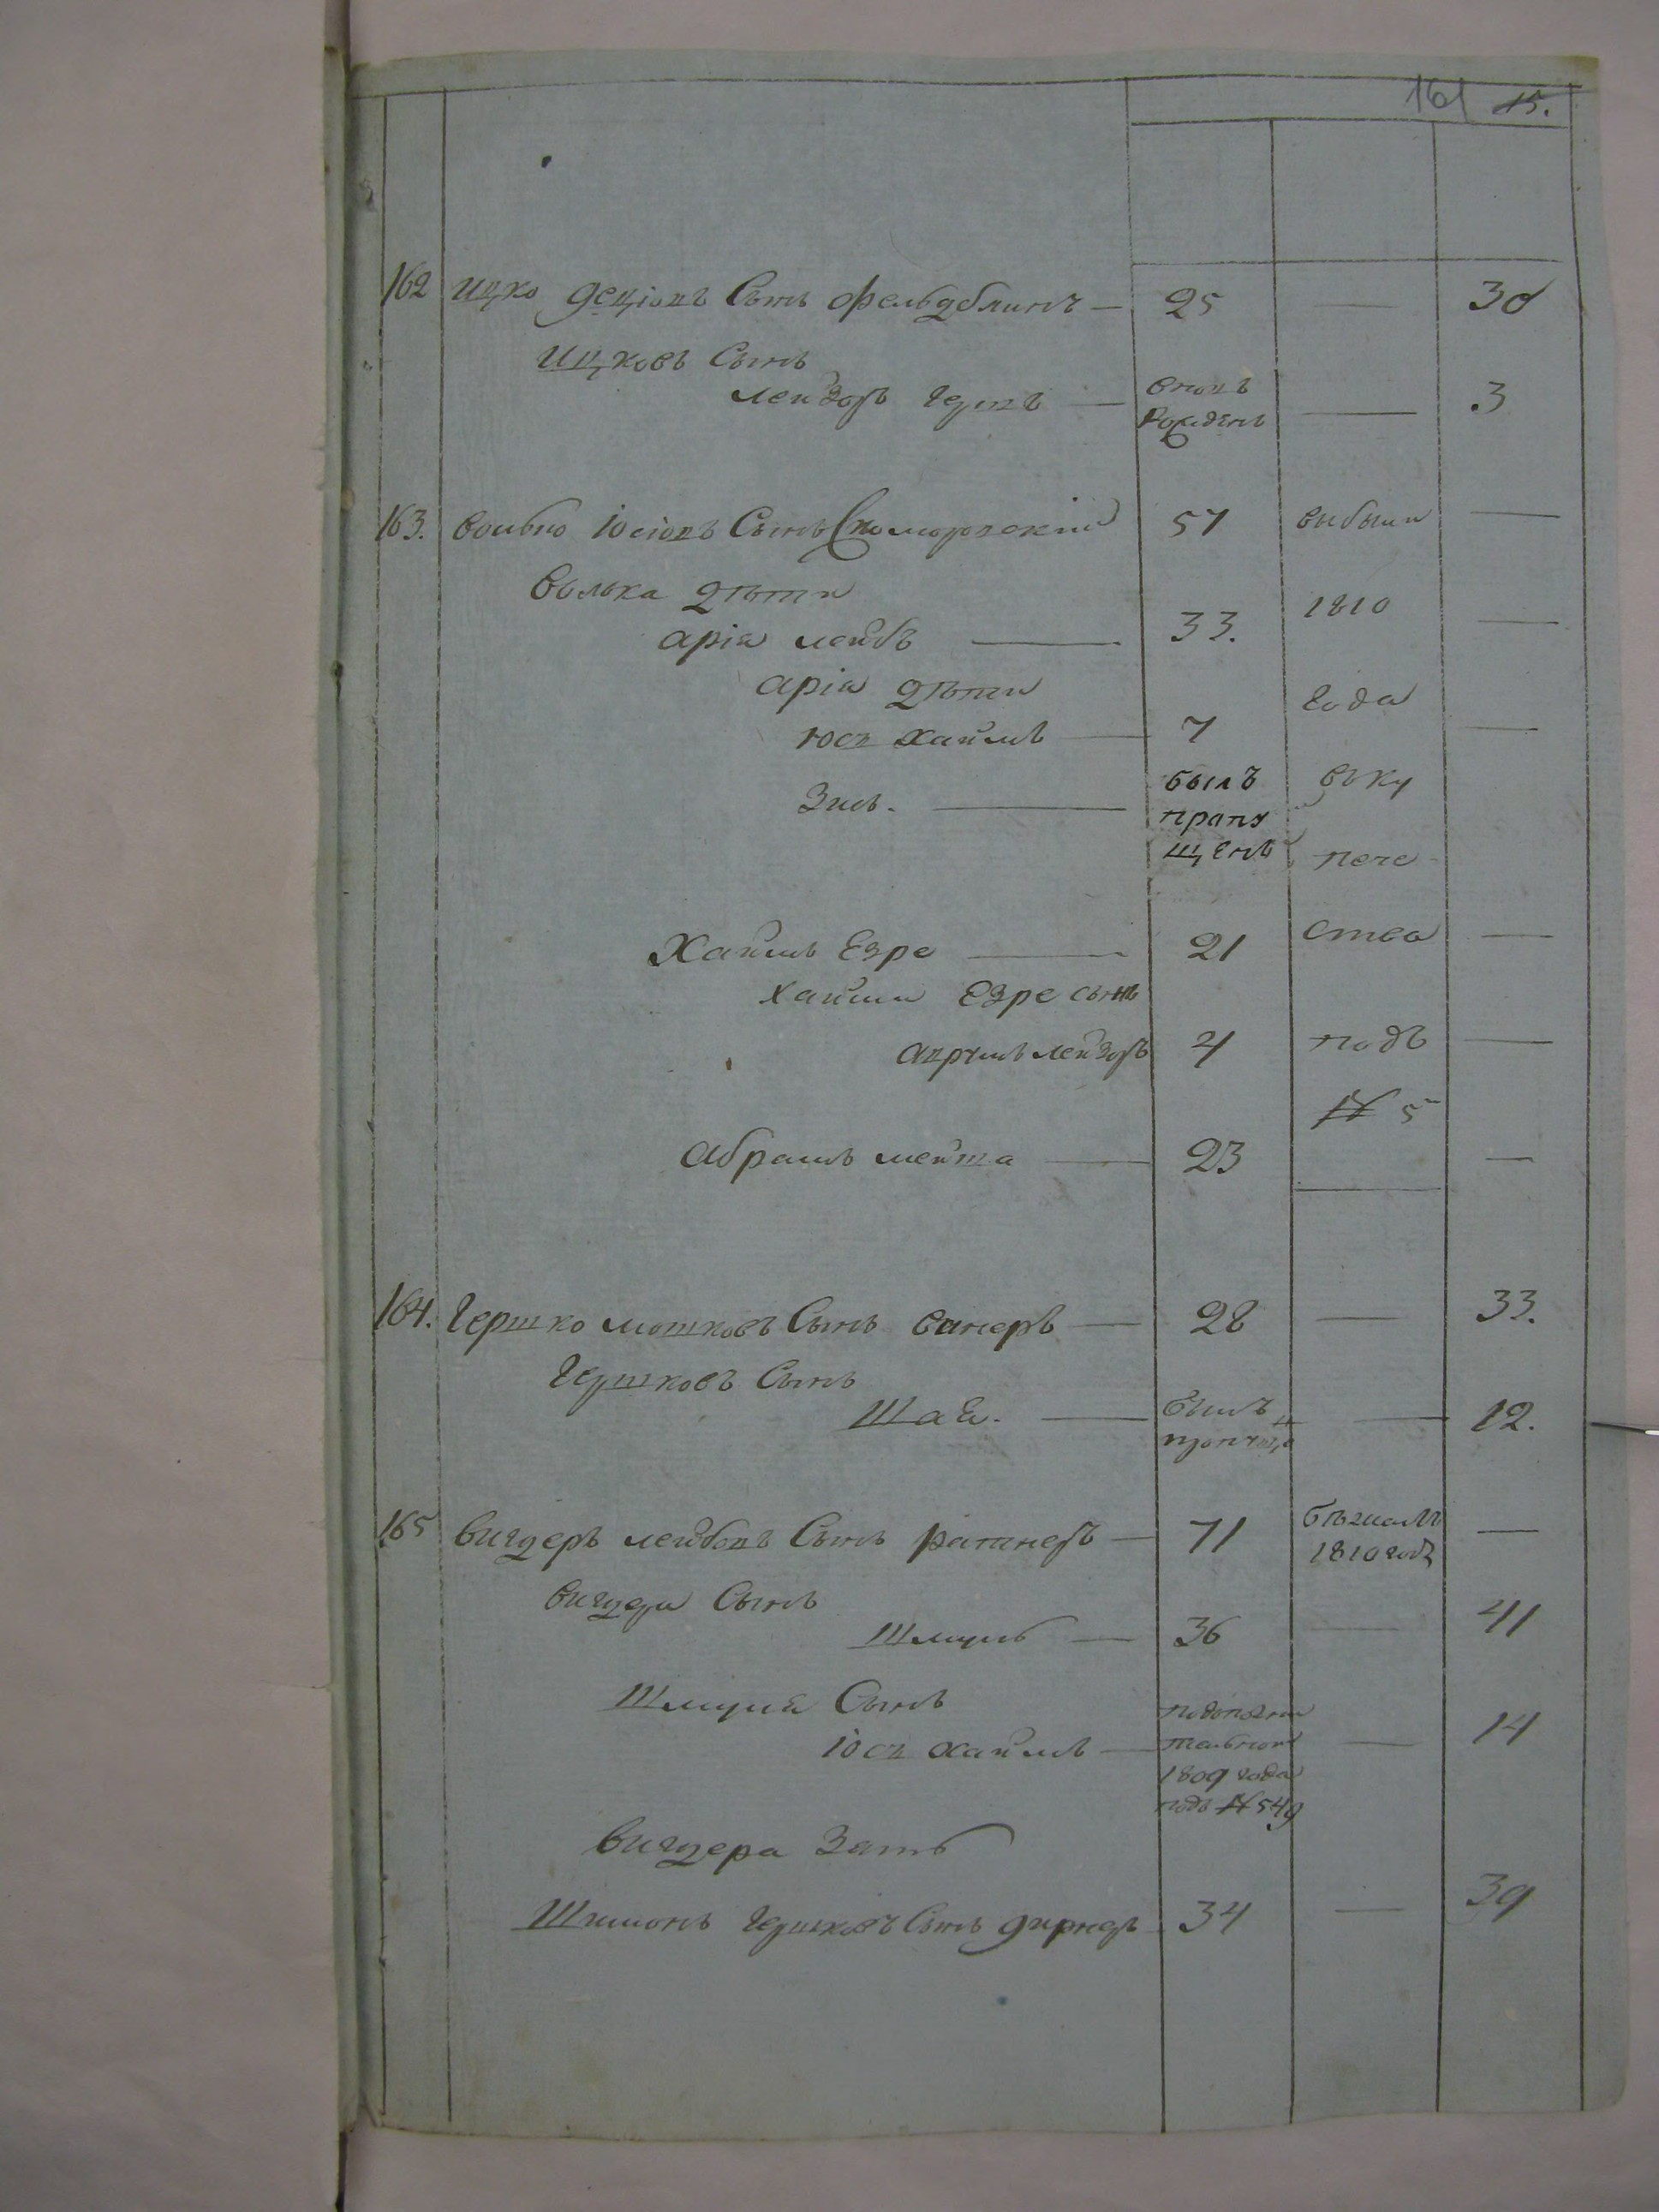 161 15.
162 Ицко Сынъ Фельдблитъ — 25 — 30
Ицковъ Сынъ
Лейзоръ Гершъ — вновь рожденъ — 3
163. Волько Іосіовъ Сынъ Скоморовскій 57 выбыли —
Волька дѣти
Арія Лейбъ — 33. 1810 —
Арія дѣти года
Юсъ Хаимъ — 7 —
Зись. — былъ въ ку
прапу
щенъ пече
Хаимъ Езре — 21 ства —
Хаима Езре сынъ
Аврумъ Лейзоръ 4 подъ —
№ 5
Абрамъ — 23 —
164. Гершко Мошковъ Сынъ Винеръ — 28 — 33.
Гершковъ Сынъ
Шае. — былъ пропущен — 12.
165 Вигдеръ Лейбовъ Сынъ — 71 бѣжалъ —
1810 году
Вигдера Сынъ
Шмуль — 36 — 41
Шмуля Сынъ
Іось Хаимъ — подополни
тельной — 14
1809 года
подъ № 549
Вигдера Зять
Шимонъ Гершковъ Сынъ 34 — 39